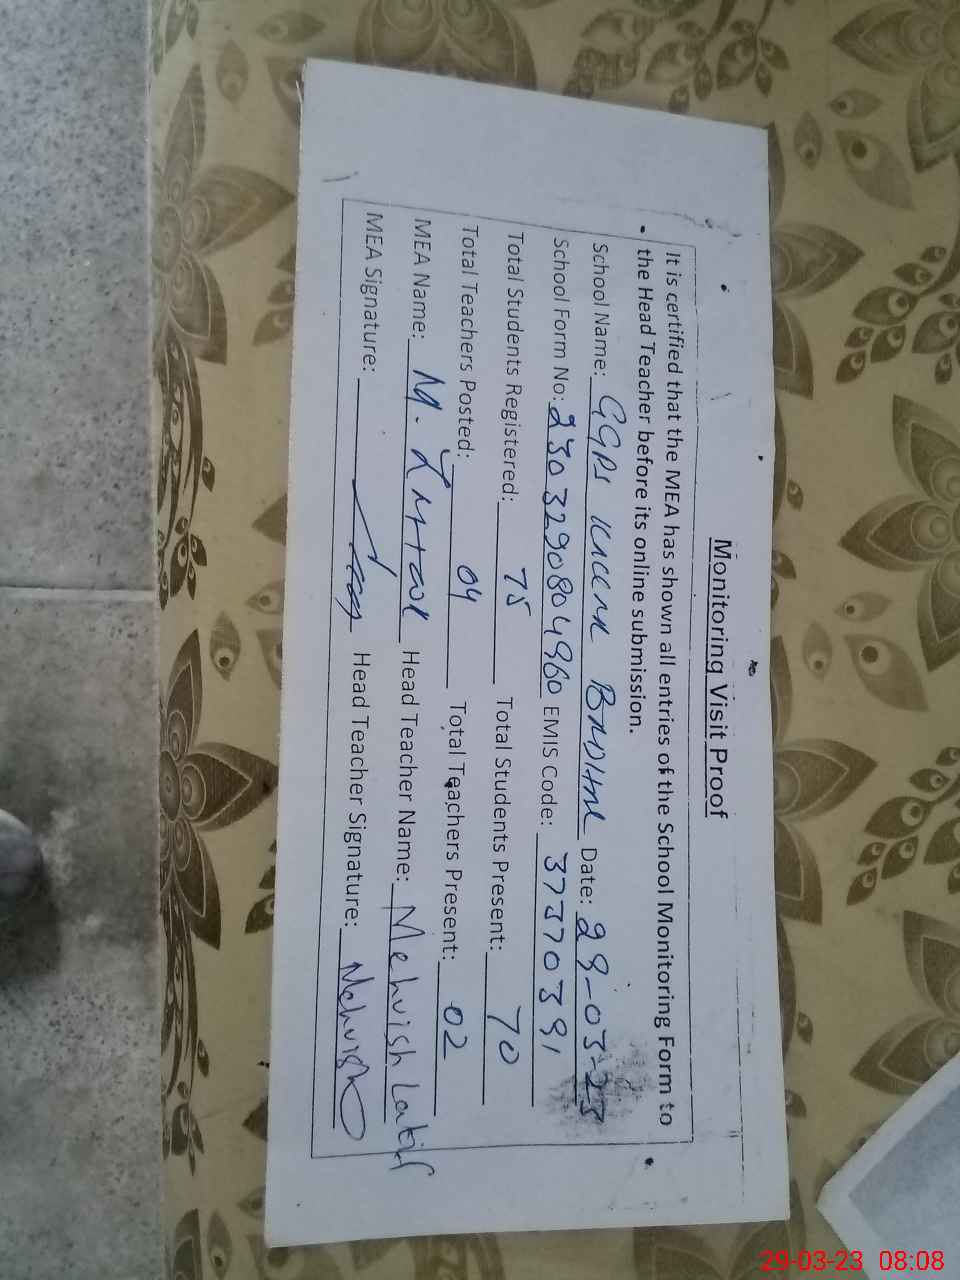 Monitoring Visit Proof
It is certified that the MEA has shown all entries of the School Monitoring Form to
the Head Teacher before its online submission.
School Name: GGPS Date: 29-03-23
School Form No: 230329080804960 EMIS Code: 37370391
Total Students Registered: 75 Total Students Present: 70
Total Teachers Posted: 04 Total Teachers Present: 02
MEA Name: M. Head Teacher Name: Mehvish Latif
MEA Signature: Head Teacher Signature: Mehvish
29-03-23 08:08